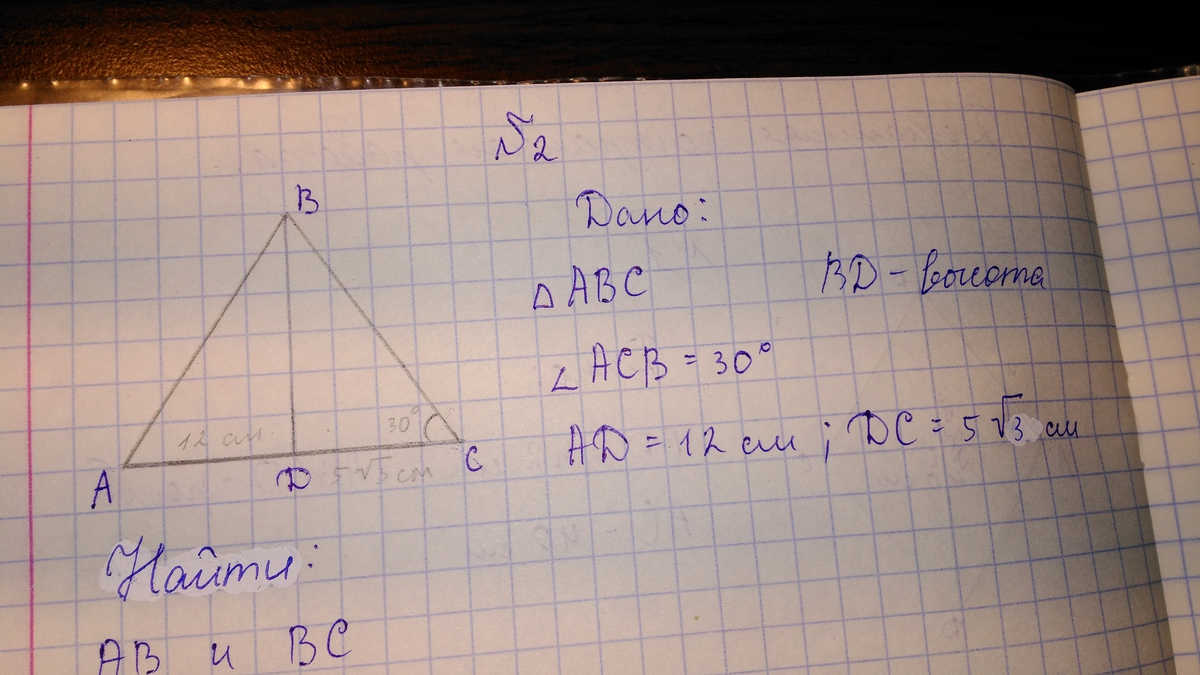 №2
Дано:
△ABC BD - высота
∠ACB = 30°
AD = 12 см ; DC = 5√3 см
B
12 см
30°
A
D
5√3 см
C
Найти:
AB и BC